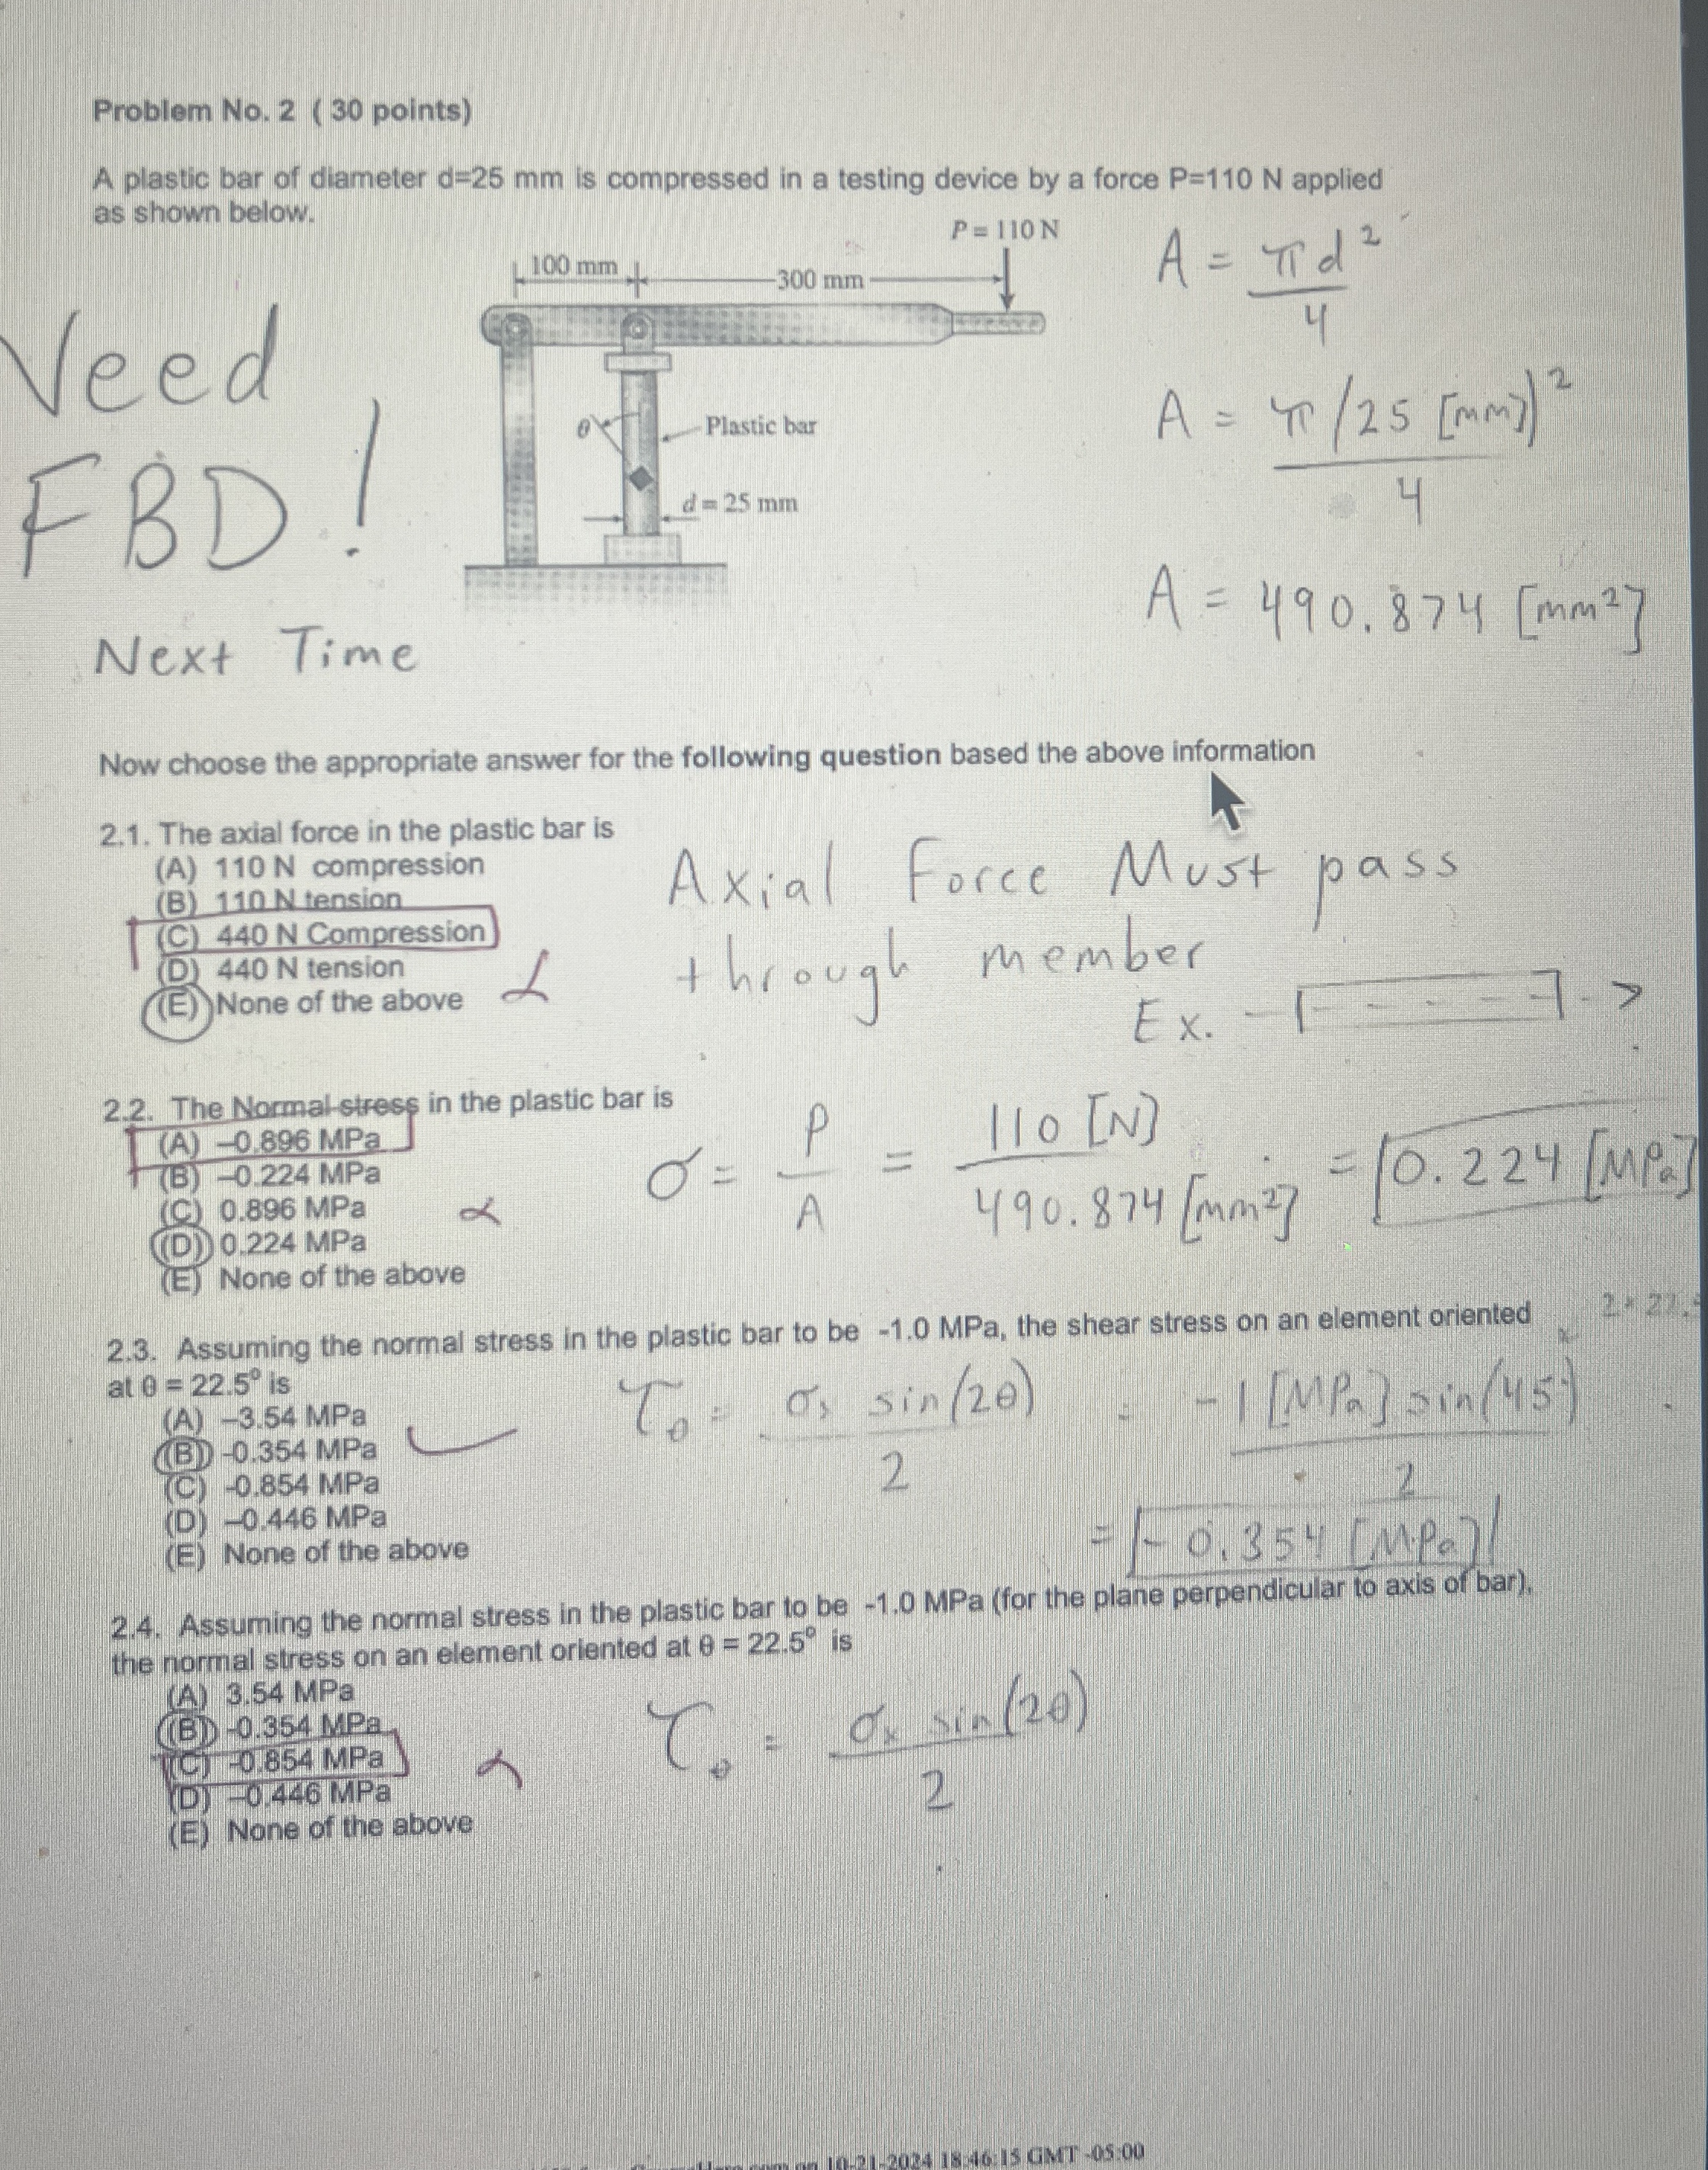 Problem No. 2 ( 30 points)
A plastic bar of diameter d=25 mm is compressed in a testing device by a force P=110 N applied
as shown below.
P = 110 N
100 mm
300 mm
θ
Plastic bar
d = 25 mm
A = πd²/4
A = π(25 [mm])²/4
A = 490.874 [mm²]
FBD!
Next Time
Now choose the appropriate answer for the following question based the above information
2.1. The axial force in the plastic bar is
(A) 110 N compression
(B) 110 N tension
(C) 440 N Compression
(D) 440 N tension
(E) None of the above
Axial Force Must pass
through member
Ex.
2.2. The Normal stress in the plastic bar is
(A) –0.896 MPa
(B) –0.224 MPa
(C) 0.896 MPa
(D) 0.224 MPa
(E) None of the above
σ = P/A = 110 [N]/490.874 [mm²] = 0.224 [MPa]
2.3. Assuming the normal stress in the plastic bar to be -1.0 MPa, the shear stress on an element oriented
at θ = 22.5° is
(A) –3.54 MPa
(B) -0.354 MPa
(C) -0.854 MPa
(D) –0.446 MPa
(E) None of the above
τθ = σx sin(2θ)/2 = -1 [MPa] sin(45°)/2
= -0.354 [MPa]
2.4. Assuming the normal stress in the plastic bar to be -1.0 MPa (for the plane perpendicular to axis of bar),
the normal stress on an element oriented at θ = 22.5° is
(A) 3.54 MPa
(B) -0.354 MPa
(C) -0.854 MPa
(D) –0.446 MPa
(E) None of the above
τθ = σx sin(2θ)/2
10-21-2024 18:46:15 GMT -05:00